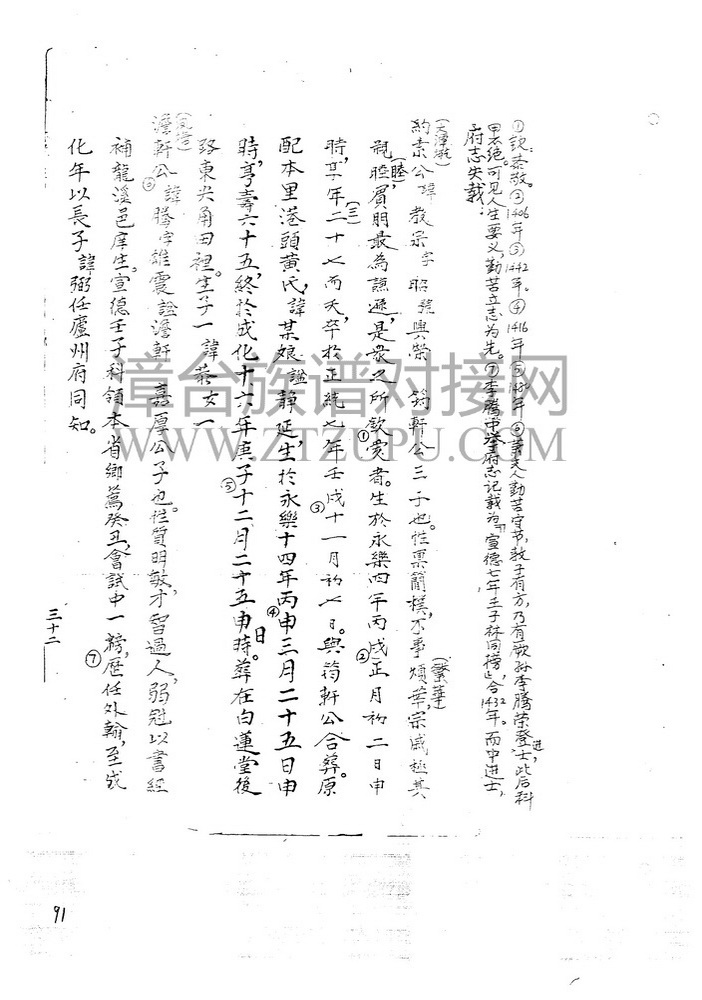 ①钦:恭敬。②1406年③1442年。④1416年⑤1480年⑥黄夫人勤苦守节,教子有方,乃有欧孙李腾荣登进士,此后科
甲不绝。可见人生要义,勤苦立志为先。⑦李腾中举府志记载为"宣德七年壬子林同榜",合1432年。而中进士,
府志失载;
約素公諱教宗字昭號興榮 筠軒公三子也。性稟簡樸,不事煩華,(繁華)宗戚極其
親睦(睦)賓朋最為謙遜,是衆之所欽①愛者。生於永樂四年丙戌②正月初二日申
時,享年二十(三)七而夭,卒於正統七年壬戌③十一月初七日。與筠軒公合葬。原
配本里港頭黄氏,諱某娘謚静延,生於永樂十四年丙申④三月二十五日申
時,亨壽六十五,終於成化十六年庚子⑤十二月二十五日申時。葬在白蓮堂後
路東尖角田裡。生子一諱恭女一
澹軒公⑥諱騰字雄震謚澹軒 嘉厚公子也。性質明敏,才智過人,弱冠以書經
補龍溪邑庠生。宣德壬子科領本省鄉薦癸丑,會試中一榜⑦,歷任外翰,至成
化年以長子諱弼任廬州府同知。
三十二
91
章台族谱对接网
WWW.ZTZUPU.COM